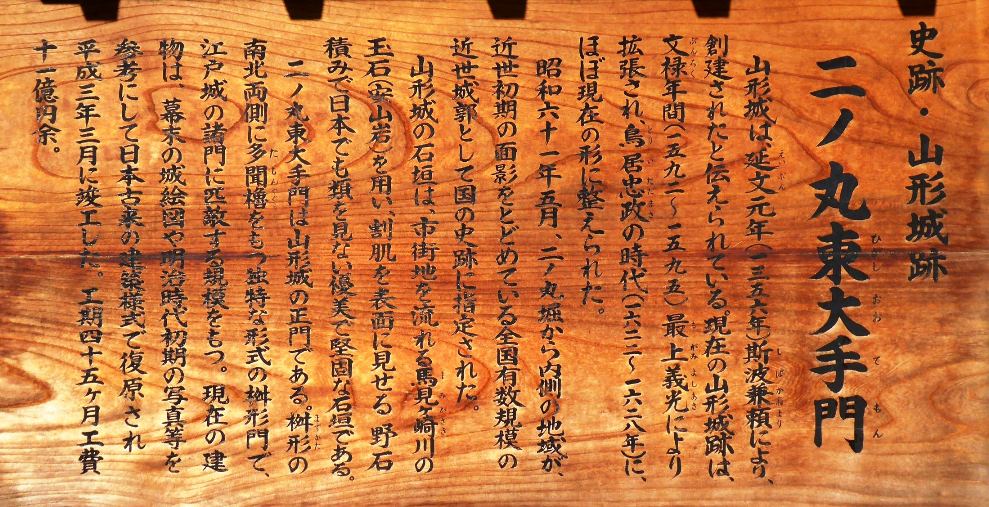 史跡・山形城跡
二ノ丸東大手門
山形城は、延文元年(一三五六年)斯波兼頼により、
創建されたと伝えられている。現在の山形城跡は、
文禄年間(一五九二～一五九五)最上義光により
拡張され、鳥居忠政の時代(一六二二～一六二八年)に、
ほぼ現在の形に整えられた。
昭和六十一年五月、二ノ丸堀から内側の地域が、
近世初期の面影をとどめている全国有数規模の
近世城郭として国の史跡に指定された。
山形城の石垣は、市街地を流れる馬見ヶ崎川の
玉石(安山岩)を用い、割肌を表面に見せる野石
積みで日本でも類を見ない優美で堅固な石垣である。
二ノ丸東大手門は山形城の正門である。桝形の
南北両側に多聞櫓をもつ独特な形式の桝形門で、
江戸城の諸門に匹敵する規模をもつ。現在の建
物は、幕末の城絵図や明治時代初期の写真等を
参考にして日本古来の建築様式で復原され
平成三年三月に竣工した。工期四十五ヶ月工費
十一億円余。